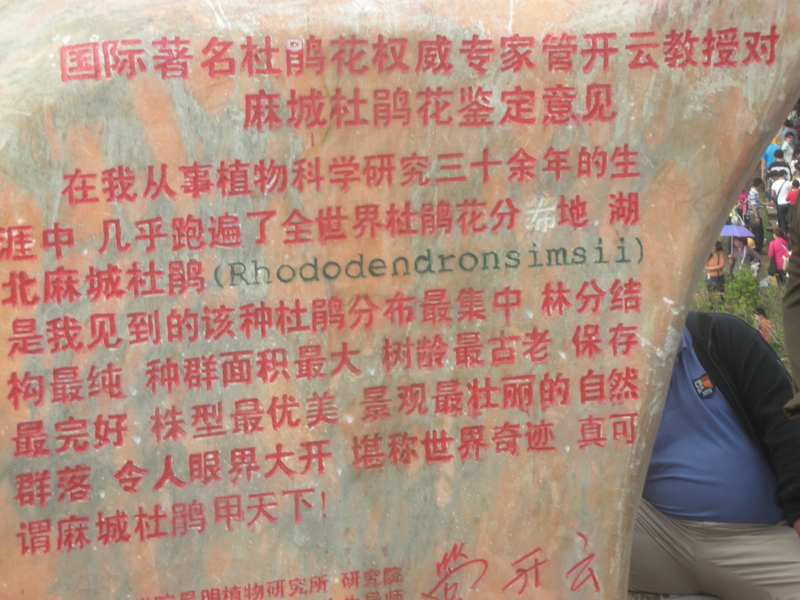 国际著名杜鹃花权威专家管开云教授对
麻城杜鹃花鉴定意见
在我从事植物科学研究三十余年的生
涯中 几乎跑遍了全世界杜鹃花分布地 湖
北麻城杜鹃(Rhododendronsimsii)
是我见到的该种杜鹃分布最集中 林分结
构最纯 种群面积最大 树龄最古老 保存
最完好 株型最优美 景观最壮丽的自然
群落 令人眼界大开 堪称世界奇迹 真可
谓麻城杜鹃甲天下!
院昆明植物研究所 研究院
管开云